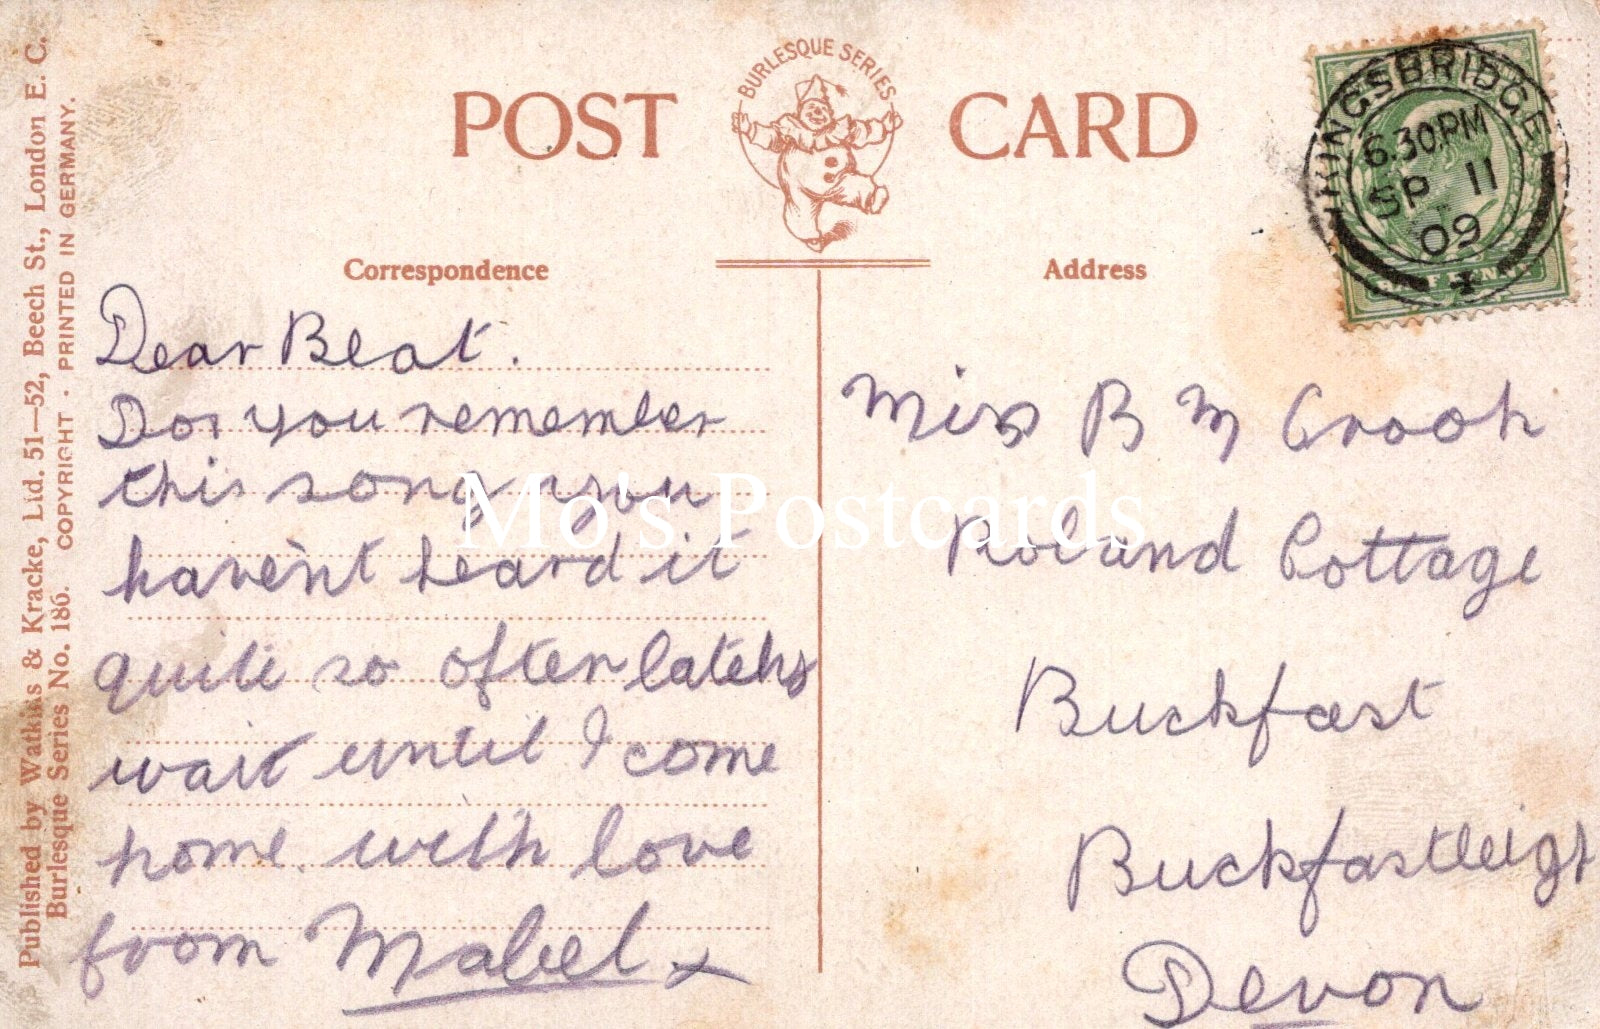 Published by Watkins & Kracke, Ltd. 51—52, Beech St., London E. C.
Burlesque Series No. 186. COPYRIGHT · PRINTED IN GERMANY.
POST CARD
BURLESQUE SERIES
Correspondence
Address
KINGSBRIDGE
6.30PM
SP 11
09
HALF PENNY
Dear Beat.
Dor you remember
this song you
haven't heard it
quite so often lately
wait until I come
home. with love
from Mabel x
Miss B M Crook
Roland Cottage
Buckfast
Buckfastleigh
Devon
Mo's Postcards